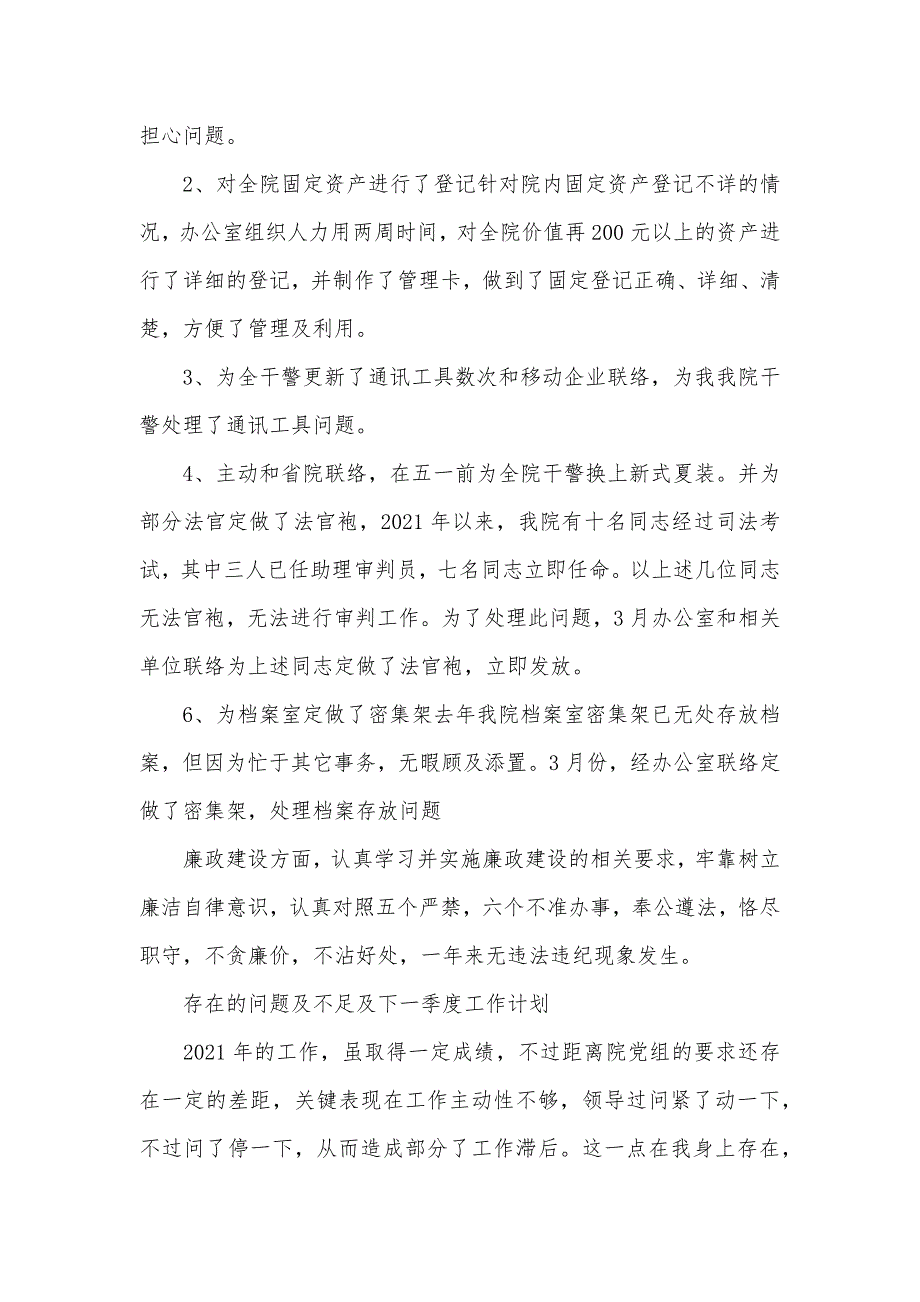 担心问题。
2、对全院固定资产进行了登记针对院内固定资产登记不详的情
况，办公室组织人力用两周时间，对全院价值再 200 元以上的资产进
行了详细的登记，并制作了管理卡，做到了固定登记正确、详细、清
楚，方便了管理及利用。
3、为全干警更新了通讯工具数次和移动企业联络，为我我院干
警处理了通讯工具问题。
4、主动和省院联络，在五一前为全院干警换上新式夏装。并为
部分法官定做了法官袍，2021 年以来，我院有十名同志经过司法考
试，其中三人已任助理审判员，七名同志立即任命。以上述几位同志
无法官袍，无法进行审判工作。为了处理此问题，3 月办公室和相关
单位联络为上述同志定做了法官袍，立即发放。
6、为档案室定做了密集架去年我院档案室密集架已无处存放档
案，但因为忙于其它事务，无暇顾及添置。3 月份，经办公室联络定
做了密集架，处理档案存放问题
廉政建设方面，认真学习并实施廉政建设的相关要求，牢靠树立
廉洁自律意识，认真对照五个严禁，六个不准办事，奉公遵法，恪尽
职守，不贪廉价，不沾好处，一年来无违法违纪现象发生。
存在的问题及不足及下一季度工作计划
2021 年的工作，虽取得一定成绩，不过距离院党组的要求还存
在一定的差距，关键表现在工作主动性不够，领导过问紧了动一下，
不过问了停一下，从而造成部分了工作滞后。这一点在我身上存在，